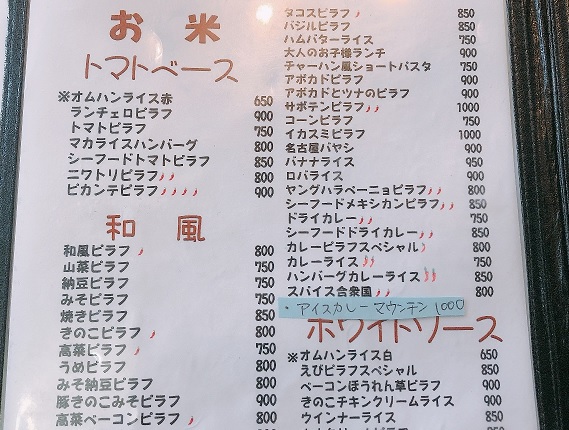 お 米
トマトベース
※オムハンライス赤 650
ランチェロピラフ 900
トマトピラフ 750
マカライスハンバーグ 800
シーフードトマトピラフ 850
ニワトリピラフ 800
ピカンテピラフ 900
和 風
和風ピラフ 800
山菜ピラフ 750
納豆ピラフ 750
みそピラフ 750
焼きピラフ 850
きのこピラフ 900
高菜ピラフ 750
うめピラフ 800
みそ納豆ピラフ 800
豚きのこみそピラフ 900
高菜ベーコンピラフ 800
タコスピラフ 850
バジルピラフ 850
ハムバターライス 750
大人のお子様ランチ 900
チャーハン風ショートパスタ 750
アボカドピラフ 900
アボカドとツナのピラフ 900
サボテンピラフ 1000
コーンピラフ 750
イカスミピラフ 1000
名古屋バヤシ 900
バナナライス 950
ロバライス 900
ヤングハラペーニョピラフ 800
シーフードメキシカンピラフ 850
ドライカレー 750
シーフードドライカレー 850
カレーピラフスペシャル 800
カレーライス 750
ハンバーグカレーライス 850
スパイス合衆国 800
・アイスカレーマウンテン 1000
ホワイトソース
※オムハンライス白 650
えびピラフスペシャル 850
ベーコンほうれん草ピラフ 900
きのこチキンクリームライス 900
ウインナーライス 850